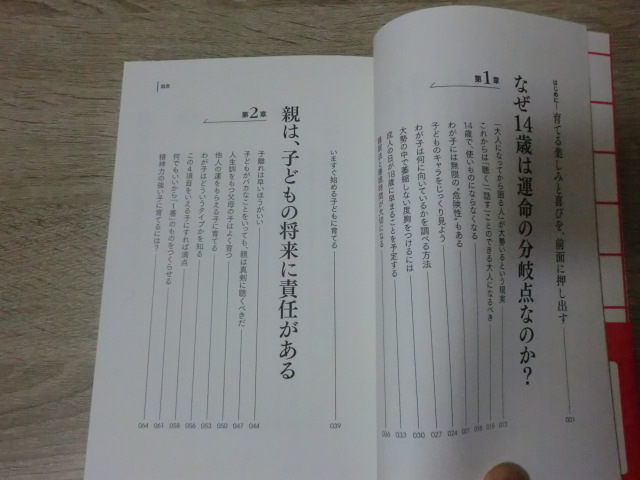 はじめに― 育てる楽しみと喜びを、前面に押し出す 001
第1章
なぜ14歳は運命の分岐点なのか?
「大人になってから困る人」が大勢いるという現実 012
これからは「聴く」「話す」ことのできる大人になるべき 015
14歳で、使いものにならなくなる 018
わが子には無限の“危険性”もある 021
子どものキャラをじっくり見よう 024
わが子は何に向いているかを調べる方法 027
大勢の中で萎縮しない度胸をつけるには 030
成人の日が18歳に早まることを予定する 033
036
目次
いますぐ始める子どもに育てる 039
第2章
親は、子どもの将来に責任がある
子離れは早いほうがいい 044
子どもがバカなことをいっても、親は真剣に聴くべきだ 047
人生訓をもつ父母の子はよく育つ 050
他人の運をもらえる子に育てる 053
わが子はどういうタイプかを知る 056
この4項目をいえる子にすれば満点 058
何でもいいから「一番」のものをつくらせる 061
精神力の強い子に育てるには? 064